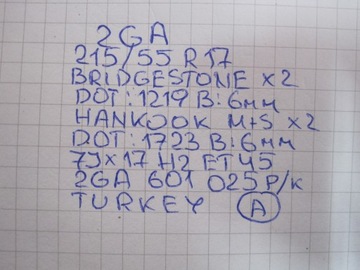 2GA
215/55 R17
BRIDGESTONE x2
DOT: 1219 B: 6мм
HANKOOK M+S x2
DOT: 1723 B: 6мм
7Jx17 H2 ET45
2GA 601 025 P/K
TURKEY A